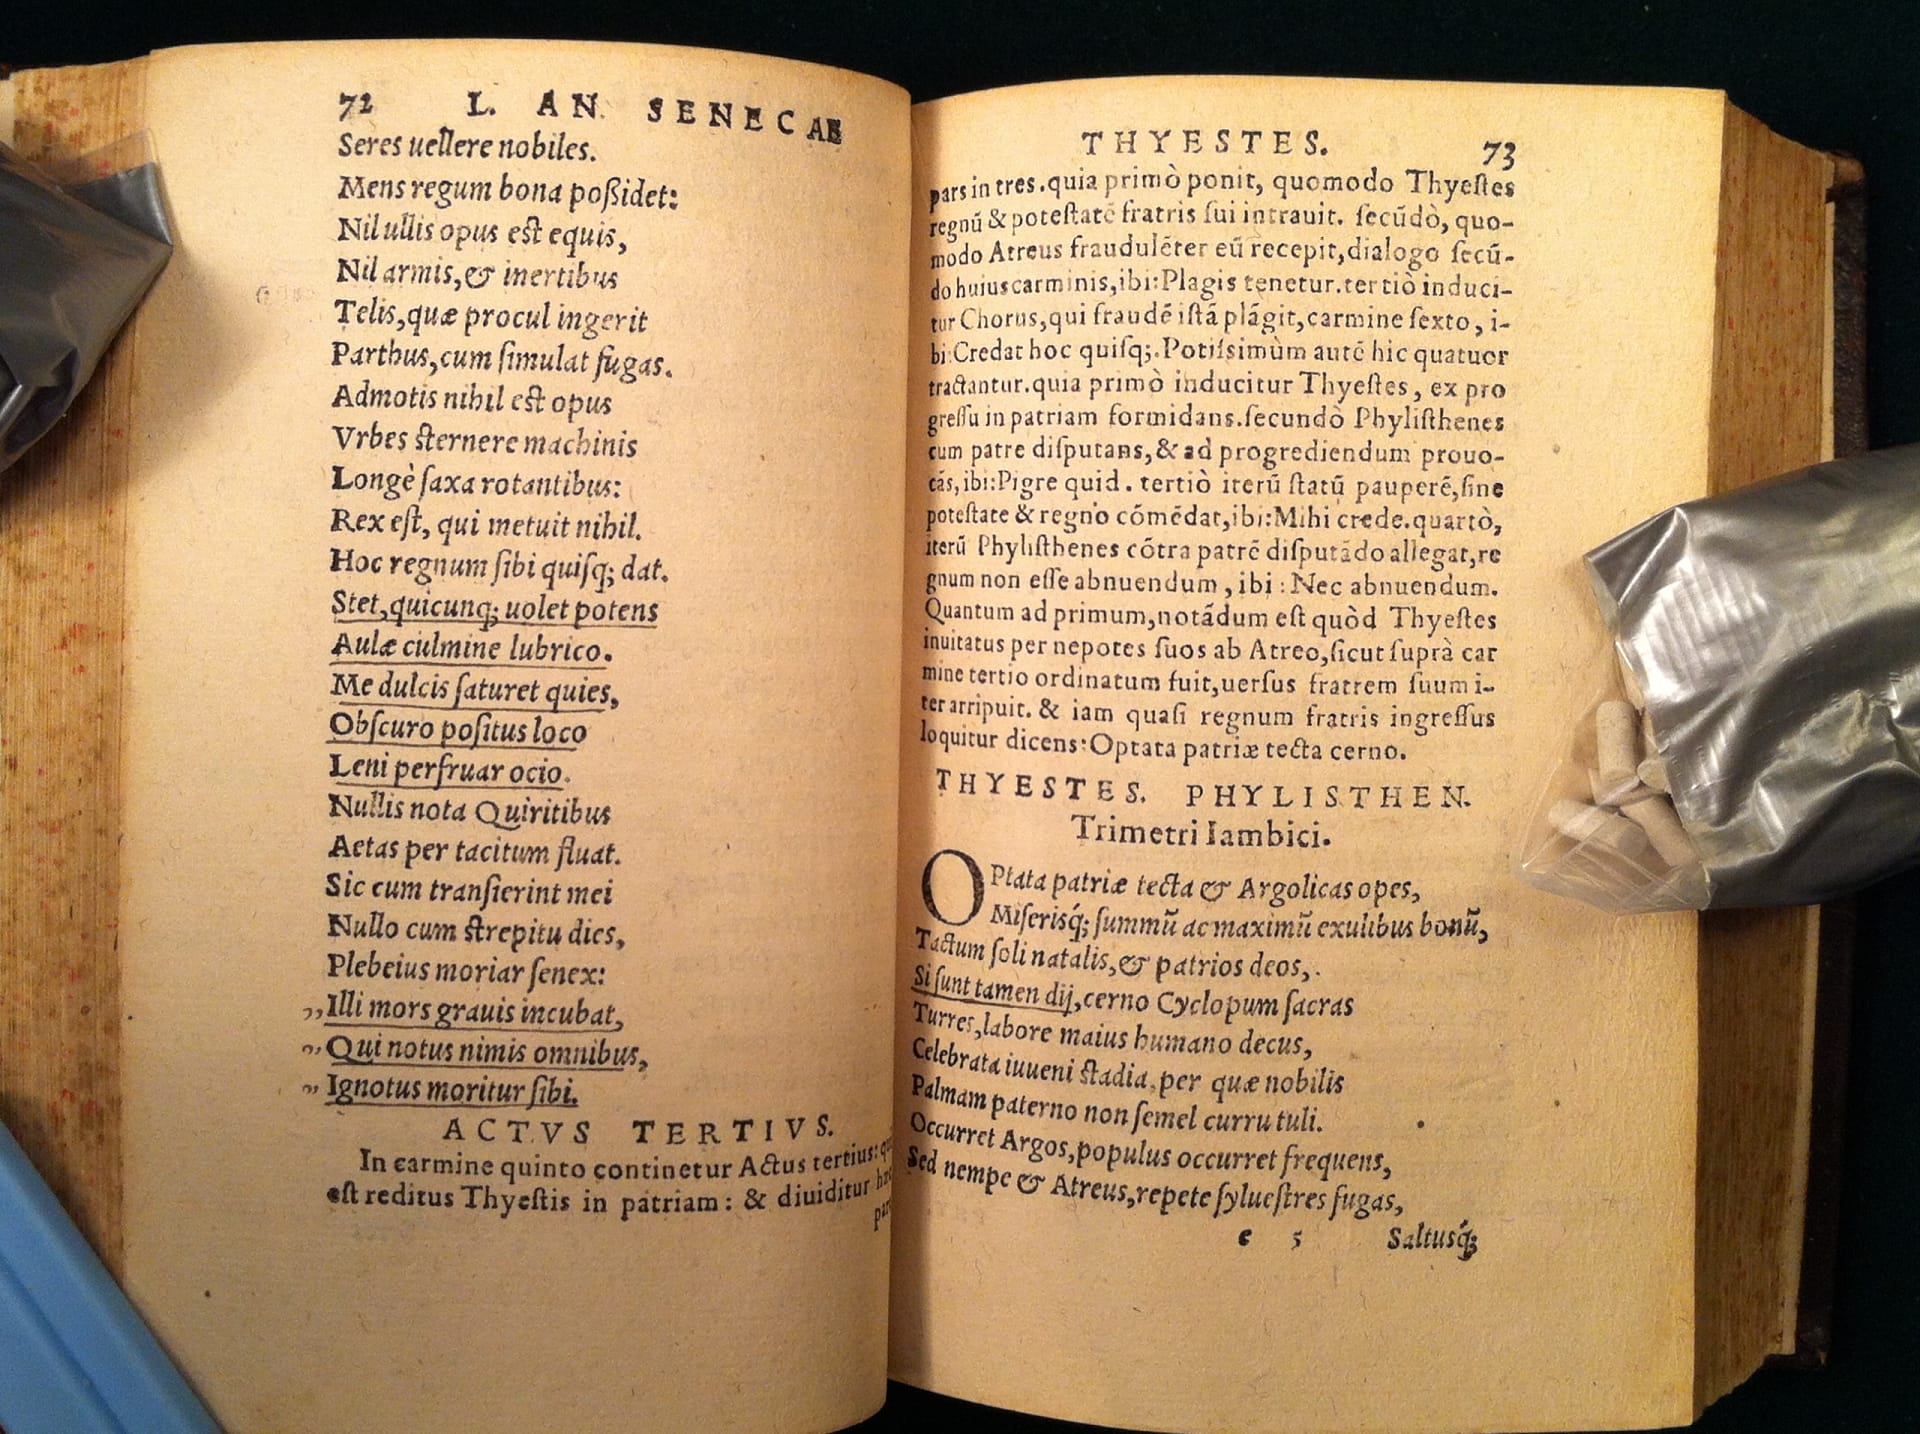 72 L. AN. SENECAE
Seres uellere nobiles.
Mens regum bona poßidet:
Nil ullis opus est equis,
Nil armis,& inertibus
Telis,quæ procul ingerit
Parthus,cum ſimulat fugas.
Admotis nihil est opus
Vrbes sternere machinis
Longè ſaxa rotantibus:
Rex eſt, qui metuit nihil.
Hoc regnum ſibi quiſq; dat.
Stet,quicunq; uolet potens
Aulæ culmine lubrico.
Me dulcis ſaturet quies,
Obſcuro poſitus loco
Leni perfruar ocio.
Nullis nota Quiritibus
Aetas per tacitum fluat.
Sic cum tranſierint mei
Nullo cum strepitu dies,
Plebeius moriar ſenex:
„Illi mors grauis incubat,
„Qui notus nimis omnibus,
„Ignotus moritur ſibi.
ACTVS TERTIVS.
In carmine quinto continetur Actus tertius:
eſt reditus Thyeſtis in patriam: & diuiditur
THYESTES. 73
pars in tres.quia primò ponit, quomodo Thyeſtes
regnũ & poteſtatẽ fratris ſui intrauit. ſecũdò, quo-
modo Atreus fraudulẽter eũ recepit,dialogo ſecũ-
do huius carminis,ibi:Plagis tenetur.tertiò induci-
tur Chorus,qui fraudẽ iſtã plãgit,carmine ſexto, i-
bi:Credat hoc quiſq;.Potiſsimùm autẽ hic quatuor
tractantur.quia primò inducitur Thyeſtes, ex pro
greſſu in patriam formidans.ſecundò Phyliſthenes
cum patre diſputans,& ad progrediendum prouo-
cãs,ibi:Pigre quid. tertiò iterũ ſtatũ pauperẽ,ſine
poteſtate & regno cõmẽdat,ibi:Mihi crede.quartò,
iterũ Phyliſthenes cõtra patrẽ diſputãdo allegat,re
gnum non eſſe abnuendum, ibi: Nec abnuendum.
Quantum ad primum,notãdum eſt quòd Thyeſtes
inuitatus per nepotes ſuos ab Atreo,ſicut ſuprà car
mine tertio ordinatum fuit,uerſus fratrem ſuum i-
ter arripuit. & iam quaſi regnum fratris ingreſſus
loquitur dicens:Optata patriæ tecta cerno.
THYESTES. PHYLISTHEN.
Trimetri Iambici.
OPtata patriæ tecta & Argolicas opes,
Miſerisq́; ſummũ ac maximũ exulibus bonũ,
Tactum ſoli natalis,& patrios deos,
Si ſunt tamen dij,cerno Cyclopum ſacras
Turres,labore maius humano decus,
Celebrata iuueni stadia,per quæ nobilis
Palmam paterno non ſemel curru tuli.
Occurret Argos,populus occurret frequens,
Sed nempe & Atreus,repete ſylueſtres fugas,
e 5 Saltusq́;